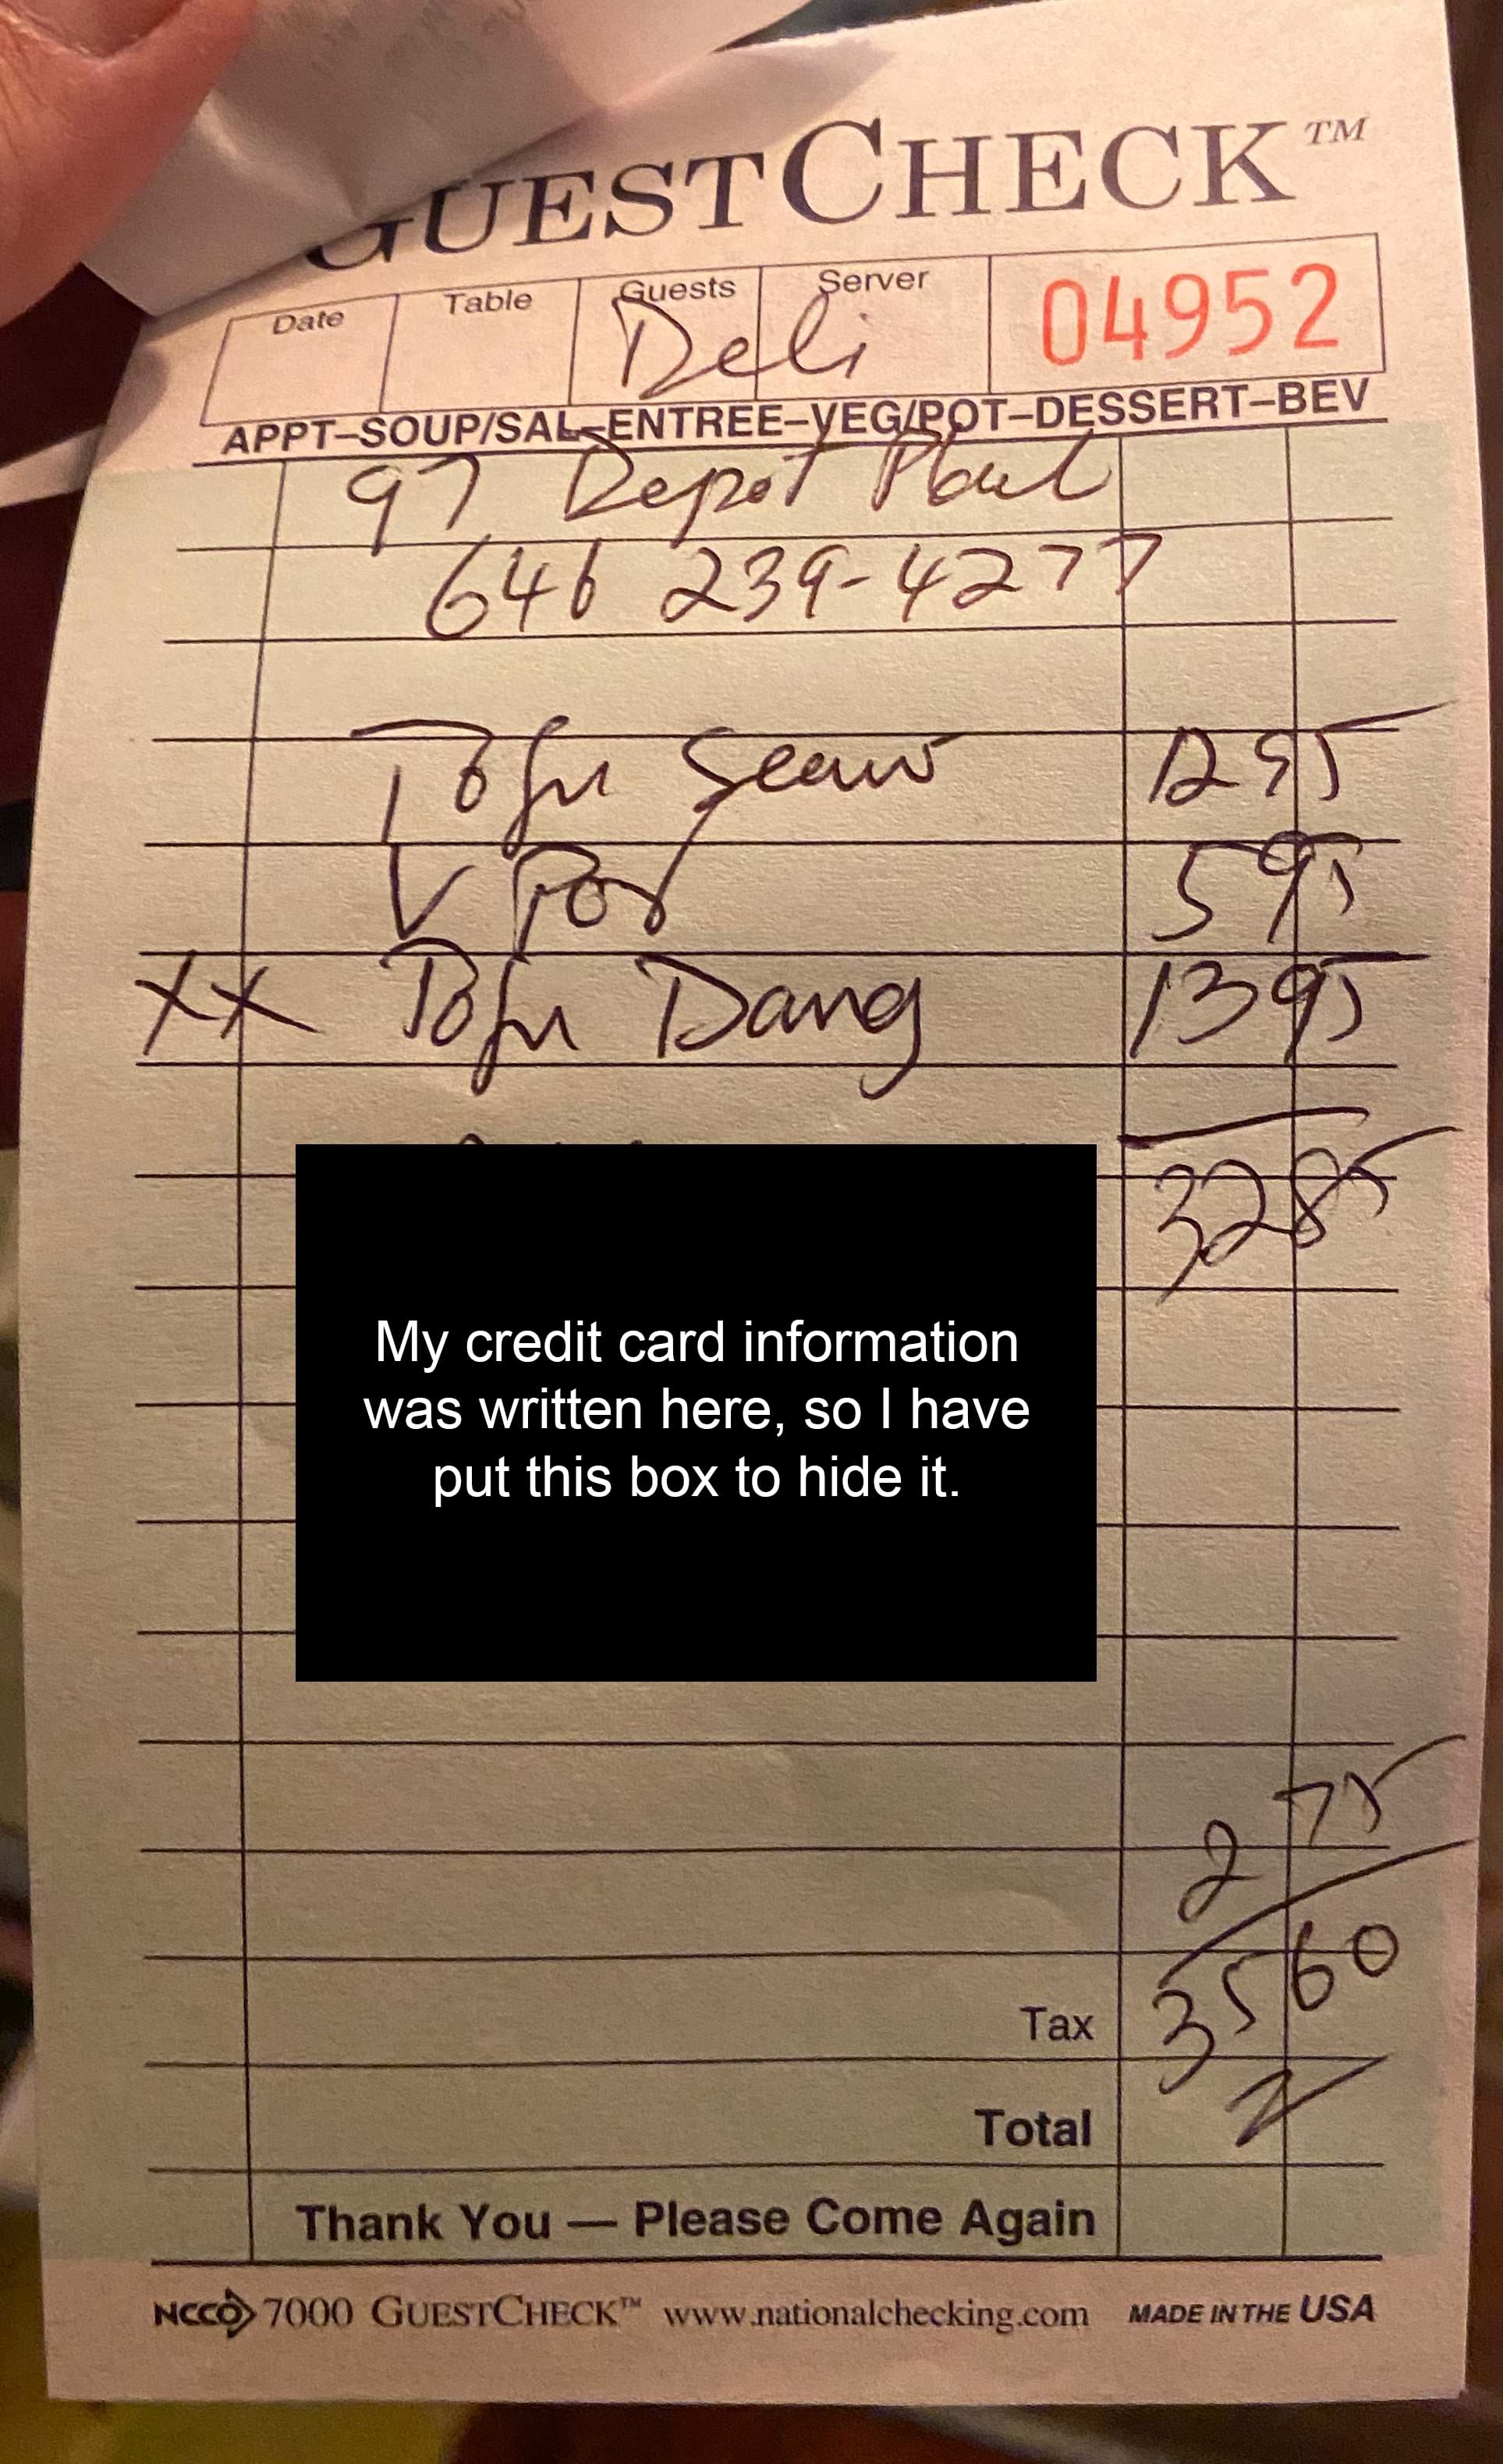 GUESTCHECK™
Date Table Guests Server 04952
Deli
APPT–SOUP/SAL–ENTREE–VEG/POT–DESSERT–BEV
97 Depot
646 239-4277
Tofu 12 95
V Pot 5 95
XX Tofu Dang 13 95
32 85
My credit card information
was written here, so I have
put this box to hide it.
2 75
Tax 35 60
Total
Thank You — Please Come Again
NCCO 7000 GUESTCHECK™ www.nationalchecking.com MADE IN THE USA